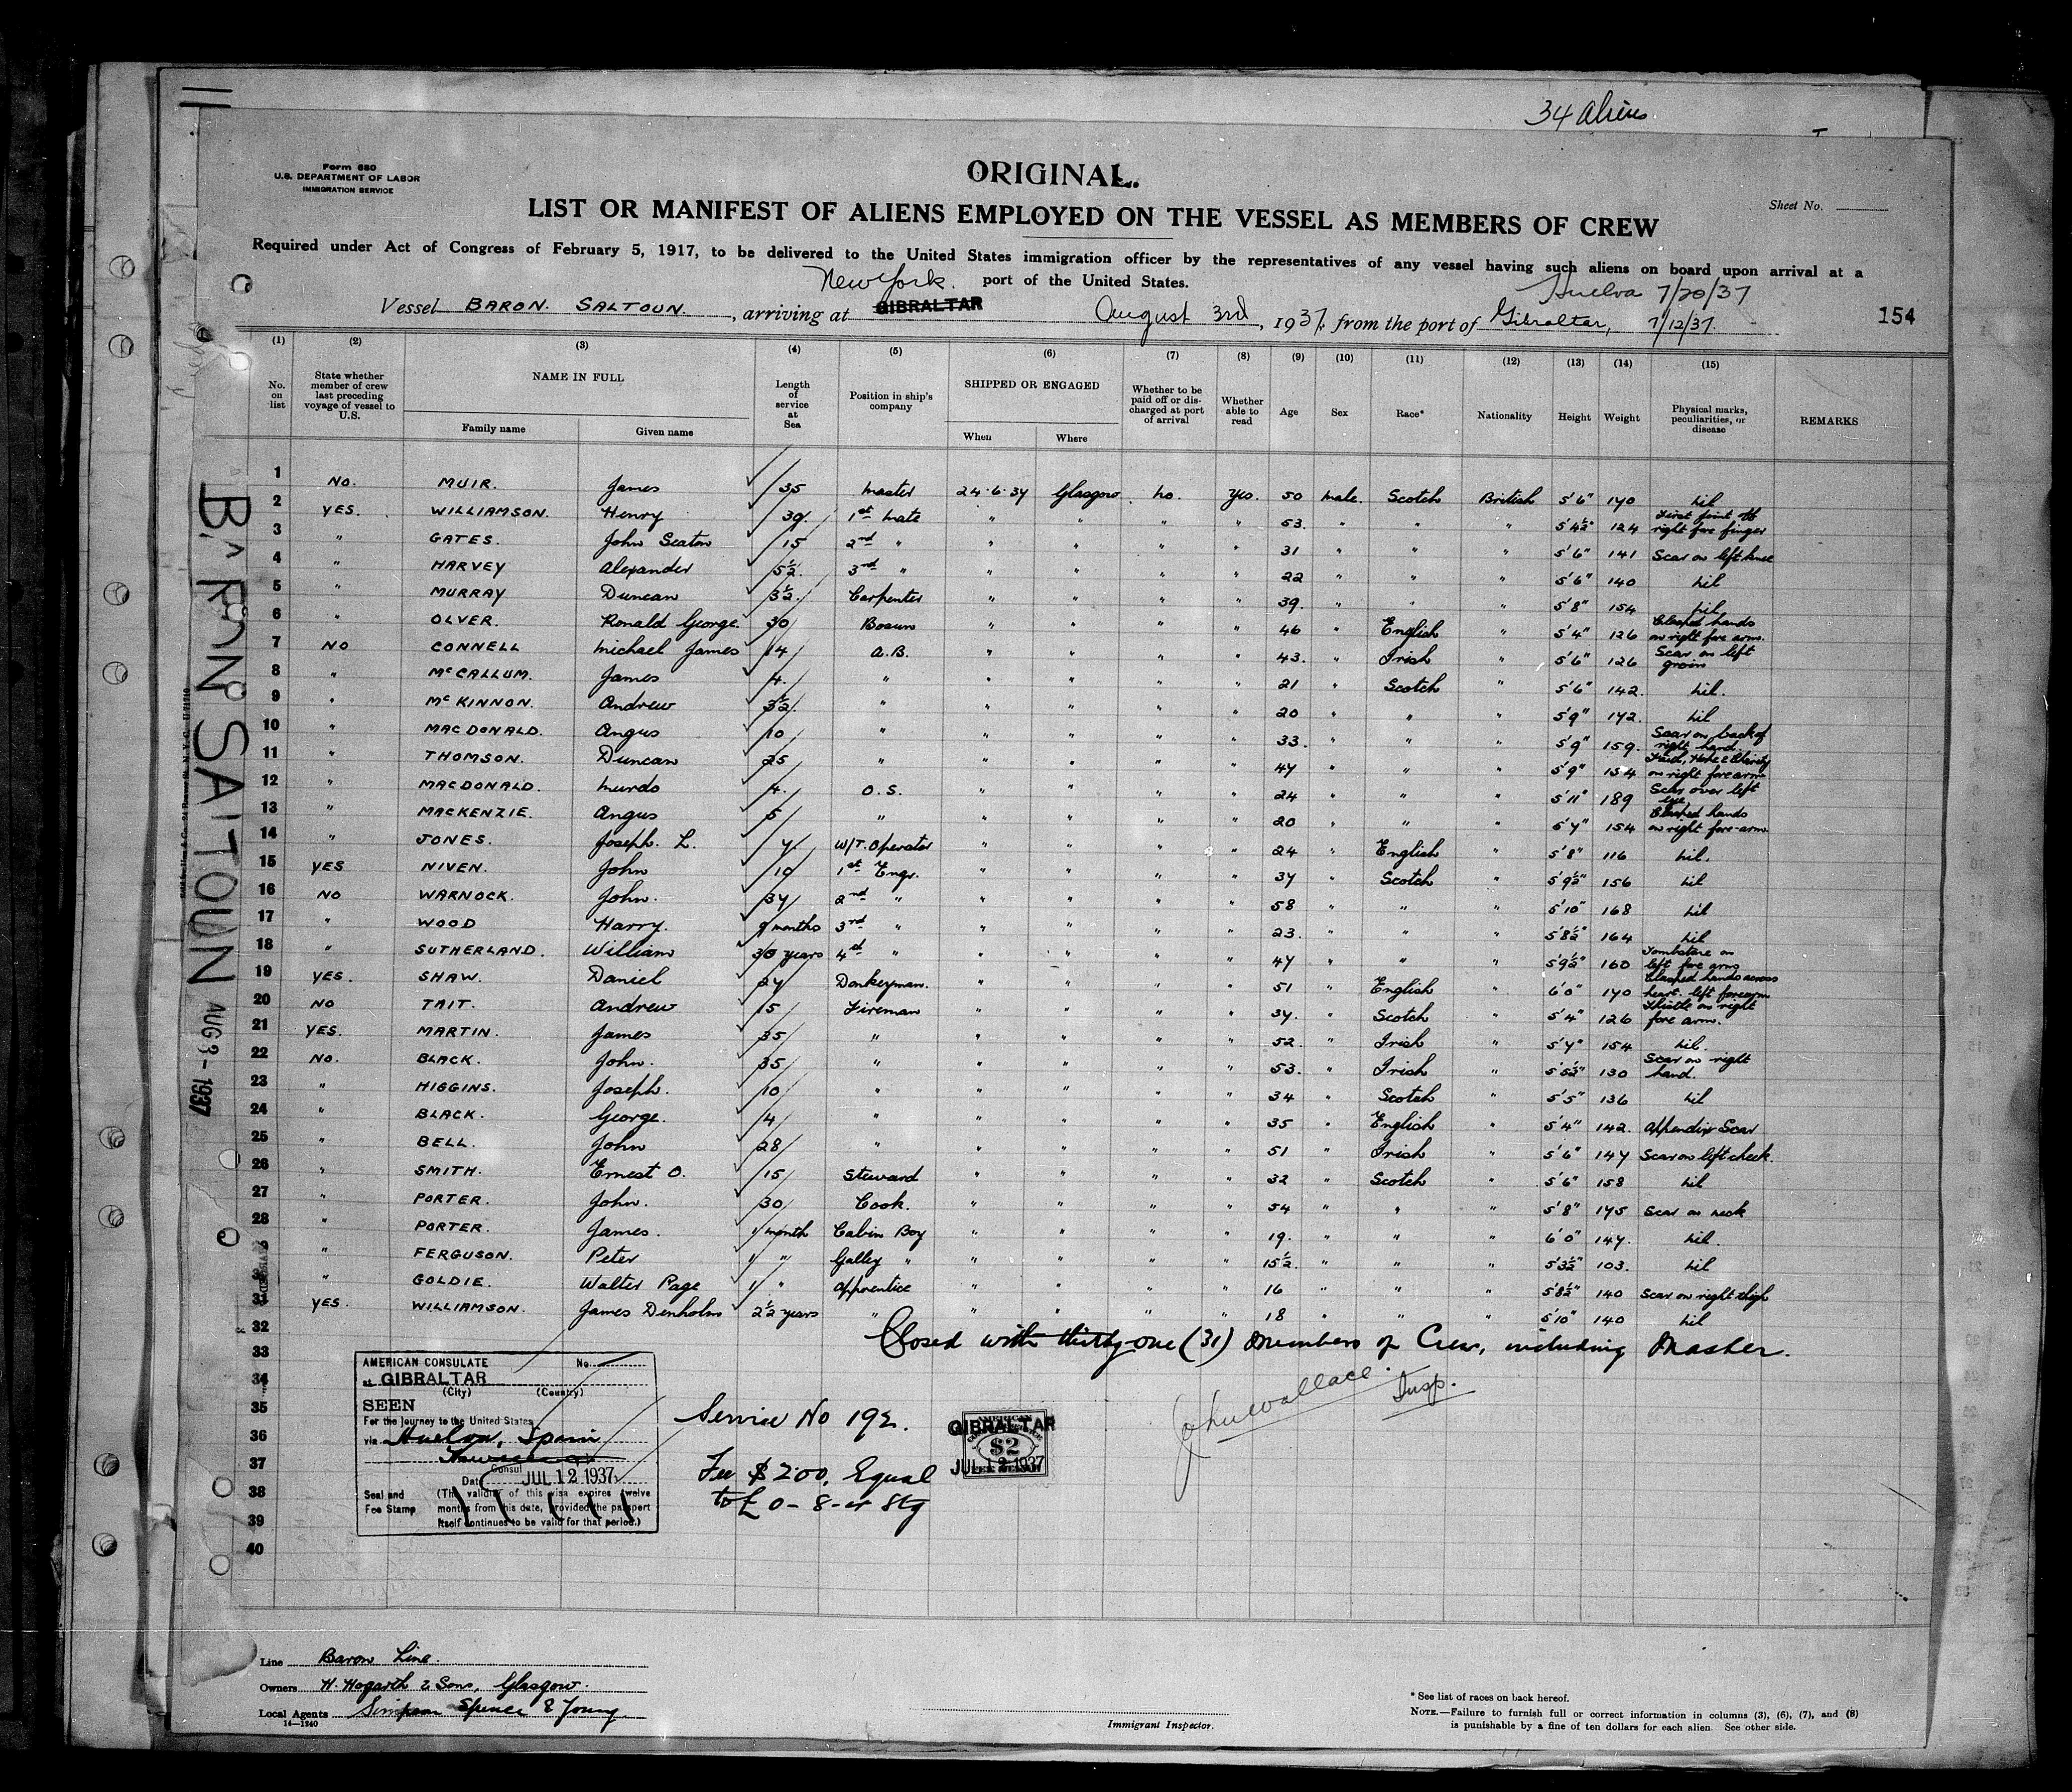 34 Aliens
Form 680
U.S. DEPARTMENT OF LABOR
IMMIGRATION SERVICE
ORIGINAL.
LIST OR MANIFEST OF ALIENS EMPLOYED ON THE VESSEL AS MEMBERS OF CREW
Sheet No.
Required under Act of Congress of February 5, 1917, to be delivered to the United States immigration officer by the representatives of any vessel having such aliens on board upon arrival at a
port of the United States.
New York. Huelva 7/20/37
Vessel BARON SALTOUN, arriving at GIBRALTAR August 3rd, 1937, from the port of Gibraltar, 7/12/37. 154
(1) (2) (3) (4) (5) (6) (7) (8) (9) (10) (11) (12) (13) (14) (15)
No. on list State whether member of crew last preceding voyage of vessel to U.S. NAME IN FULL Family name Given name Length of service at Sea Position in ship's company SHIPPED OR ENGAGED When Where Whether to be paid off or discharged at port of arrival Whether able to read Age Sex Race* Nationality Height Weight Physical marks, peculiarities, or disease REMARKS
1 No. MUIR. James 35 Master 24.6.37 Glasgow no. Yes. 50 male. Scotch British 5'6" 170 nil
2 YES. WILLIAMSON. Henry 39. 1st Mate " " " " 53. " " " 5'4½" 124 First joint off right fore finger
3 " GATES. John Seaton 15 2nd " " " " " 31 " " " 5'6" 141 Scar on left knee
4 " HARVEY Alexander 5½ 3rd " " " " " 22 " " " 5'6" 140 nil
5 " MURRAY Duncan 3½ Carpenter " " " " 39. " " " 5'8" 154 nil
6 " OLVER. Ronald George. 30 Bosun " " " " 46 " English " 5'4" 126 Clasped hands on right fore arm.
7 NO CONNELL Michael James 14 A.B. " " " " 43. " Irish " 5'6" 126 Scar on left groin
8 " McCALLUM. James 4. " " " " " 21 " Scotch " 5'6" 142. nil.
9 " McKINNON. Andrew 3½ " " " " " 20 " " " 5'9" 172. nil
10 " MACDONALD. Angus 10 " " " " " 33. " " " 5'9" 159. Scar on back of right hand.
11 " THOMSON. Duncan 25 " " " " " 47 " " " 5'9" 154 Faith, Hope & Charity on right forearm
12 " MACDONALD. Murdo 4. O.S. " " " " 24 " " " 5'11" 189 Scar over left eye
13 " MACKENZIE. Angus 5 " " " " " 20 " " " 5'7" 154 Clasped hands on right fore-arm.
14 " JONES. Joseph. L. 7 W/T. Operator " " " " 24 " English " 5'8" 116 nil.
15 YES NIVEN. John 10 1st Engr. " " " " 37 " Scotch " 5'9½" 156 nil
16 NO WARNOCK. John. 37 2nd " " " " " 58 " " " 5'10" 168 nil
17 " WOOD Harry. 9 months 3rd " " " " " 23. " " " 5'8½" 164 nil
18 " SUTHERLAND. William 30 years 4th " " " " " 47 " " " 5'9½" 160 Tombstone on left fore arm
19 YES. SHAW. Daniel 27 Donkeyman. " " " " 51 " English " 6'0" 170 Clasped hands across heart. left forearm
20 NO TAIT. Andrew 15 Fireman " " " " 37. " Scotch " 5'4" 126 Thistle on right fore arm.
21 YES. MARTIN. James 35 " " " " " 52. " Irish " 5'7" 154 nil.
22 No. BLACK. John. 35 " " " " " 53. " Irish " 5'5½" 130 Scar on right hand.
23 " HIGGINS. Joseph. 10 " " " " " 34 " Scotch " 5'5" 136 nil
24 " BLACK. George. 4 " " " " " 35 " English " 5'4" 142. Appendix Scar
25 " BELL. John 28 " " " " " 51 " Irish " 5'6" 147 Scar on left cheek.
26 " SMITH. Ernest O. 15 Steward " " " " 32 " Scotch " 5'6" 158 nil
27 " PORTER. John. 30 Cook. " " " " 54 " " " 5'8" 175 Scar on neck
28 " PORTER. James. 1 month Cabin Boy " " " " 19. " " " 6'0" 147. nil.
29 " FERGUSON. Peter 1 " Galley " " " " " 15½. " " " 5'3½" 103. nil
30 " GOLDIE. Walter Page 1 " Apprentice " " " " 16 " " " 5'8½" 140 Scar on right thigh
31 YES. WILLIAMSON. James Denholm 2½ years " " " " " 18 " " " 5'10" 140 nil
32 Closed with thirty one (31) members of Crew, including Master.
33
34
35
36
37
38
39
40
John Wallace Insp.
AMERICAN CONSULATE No.
at GIBRALTAR
(City) (Country)
SEEN
For the journey to the United States
via Huelva, Spain
Consul
Date JUL 12 1937
Seal and Fee Stamp
(The validity of this visa expires twelve
months from this date, provided the passport
itself continues to be valid for that period.)
Service No 192.
Fee $2.00, Equal
to £ 0-8-4 Stg
GIBRALTAR
$2
JUL 12 1937
BARON SALTOUN AUG 3-1937
Line Baron Line.
Owners H. Hogarth & Sons, Glasgow.
Local Agents Simpson Spence & Young
14—1240
Immigrant Inspector.
* See list of races on back hereof.
NOTE.—Failure to furnish full or correct information in columns (3), (6), (7), and (8)
is punishable by a fine of ten dollars for each alien. See other side.